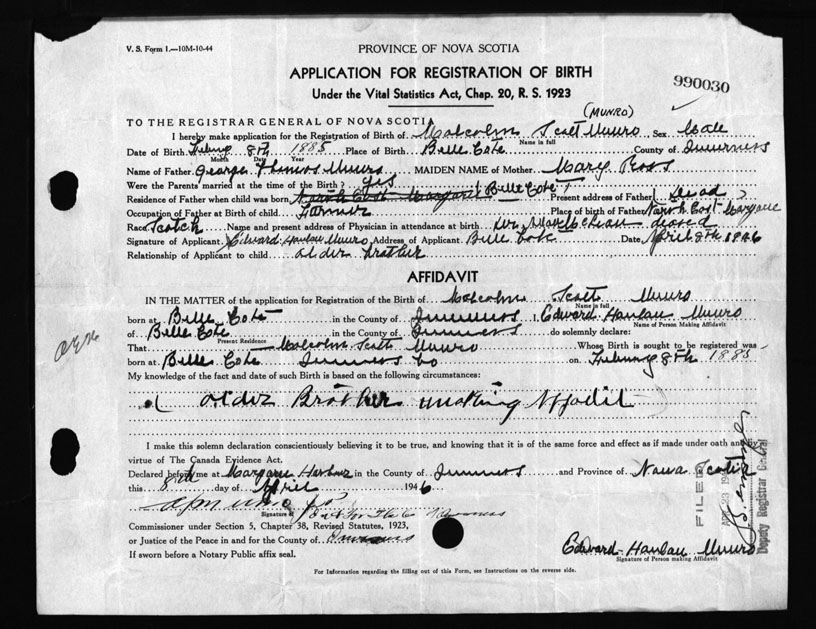 V. S. Form 1.—10M-10-44
PROVINCE OF NOVA SCOTIA
APPLICATION FOR REGISTRATION OF BIRTH
Under the Vital Statistics Act, Chap. 20, R. S. 1923
990030
TO THE REGISTRAR GENERAL OF NOVA SCOTIA
(MUNRO)
I hereby make application for the Registration of Birth of Malcolm Scott Munro Sex Male
Name in full
Date of Birth 8th 1885 Place of Birth Belle Cote County of Inverness
Month Date Year
Name of Father George Thomas Munro MAIDEN NAME of Mother Mary Ross
Were the Parents married at the time of the Birth? yes
Residence of Father when child was born North East Margaree Belle Cote Present address of Father (Dead)
Occupation of Father at Birth of child Farmer Place of birth of Father North East Margaree
Race Scotch Name and present address of Physician in attendance at birth McLean
Signature of Applicant Edward Hanlan Munro Address of Applicant Belle Cote Date April 8th 1946
Relationship of Applicant to child older brother
AFFIDAVIT
IN THE MATTER of the application for Registration of the Birth of Malcolm Scott Munro
Name in full
born at Belle Cote in the County of Inverness I, Edward Hanlan Munro
Name of Person Making Affidavit
of Belle Cote in the County of Inverness do solemnly declare:
Present Residence
That Malcolm Scott Munro Whose Birth is sought to be registered was
born at Belle Cote Inverness Co on 8th 1885
My knowledge of the fact and date of such Birth is based on the following circumstances:
older Brother making
I make this solemn declaration conscientiously believing it to be true, and knowing that it is of the same force and effect as if made under oath and by
virtue of The Canada Evidence Act.
Declared before me at Margaree Harbour in the County of Inverness and Province of Nova Scotia
this 8th day of April 1946
Signature of
Commissioner under Section 5, Chapter 38, Revised Statutes, 1923,
or Justice of the Peace in and for the County of Inverness
If sworn before a Notary Public affix seal.
Edward Hanlan Munro
Signature of Person making Affidavit
FILED
Deputy Registrar General
For Information regarding the filling out of this Form, see Instructions on the reverse side.